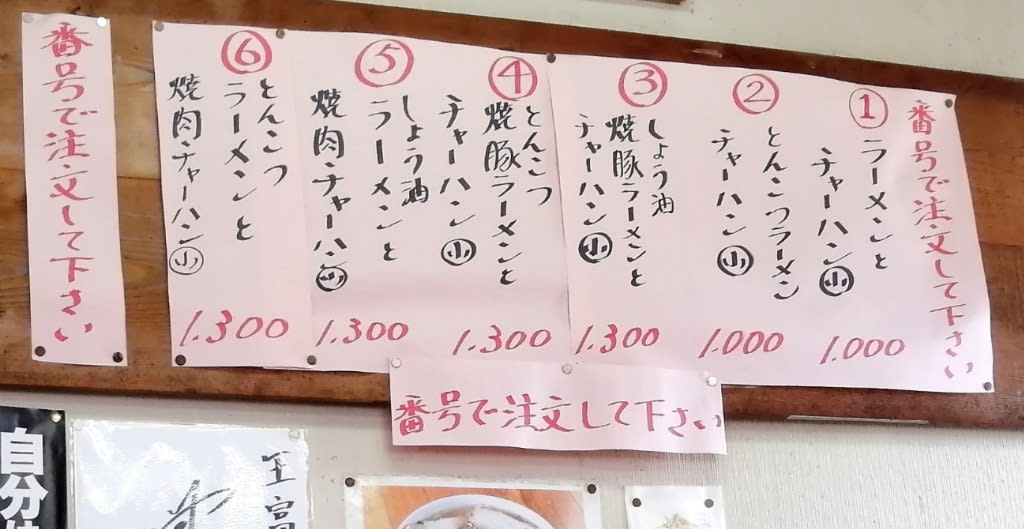 番号で注文して下さい
①
ラーメンと
チャーハン㊙小
1.000
②
とんこつラーメン
チャーハン小
1.000
③
しょう油
焼豚ラーメンと
チャーハン小
1.300
④
とんこつ
焼豚ラーメンと
チャーハン小
1.300
⑤
しょう油
ラーメンと
焼肉チャーハン小
1.300
⑥
とんこつ
ラーメンと
焼肉チャーハン小
1.300
番号で注文して下さい
番号で注文して下さい
自分